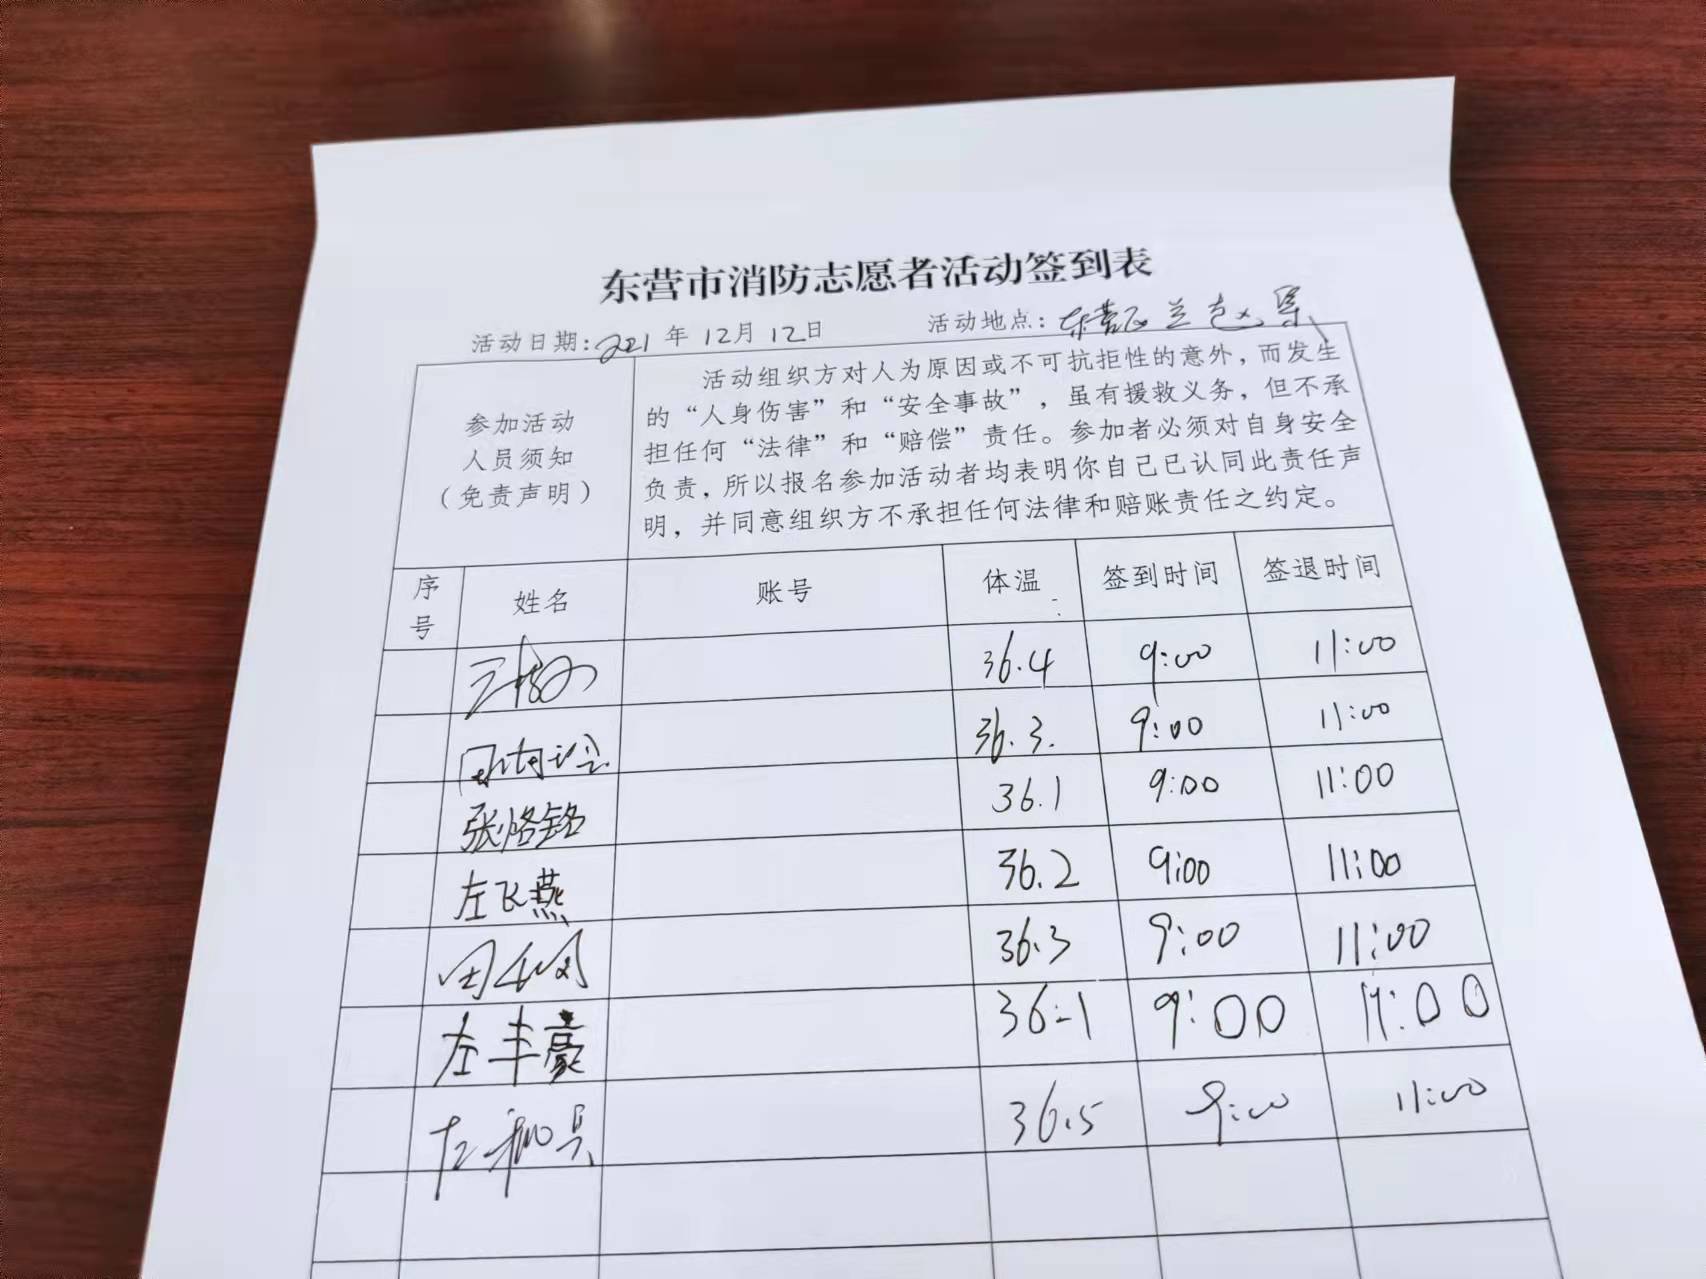 东营市消防志愿者活动签到表
活动日期:2021年12月12日 活动地点:
参加活动
人员须知
(免责声明)
活动组织方对人为原因或不可抗拒性的意外,而发生
的“人身伤害”和“安全事故”,虽有援救义务,但不承
担任何“法律”和“赔偿”责任。参加者必须对自身安全
负责,所以报名参加活动者均表明你自己已认同此责任声
明,并同意组织方不承担任何法律和赔账责任之约定。
序号 姓名 账号 体温 签到时间 签退时间
36.4 9:00 11:00
36.3. 9:00 11:00
张恪铭 36.1 9:00 11:00
左飞燕 36.2 9:00 11:00
36.3 9:00 11:00
左丰豪 36.1 9:00 11:00
36.5 9:00 11:00